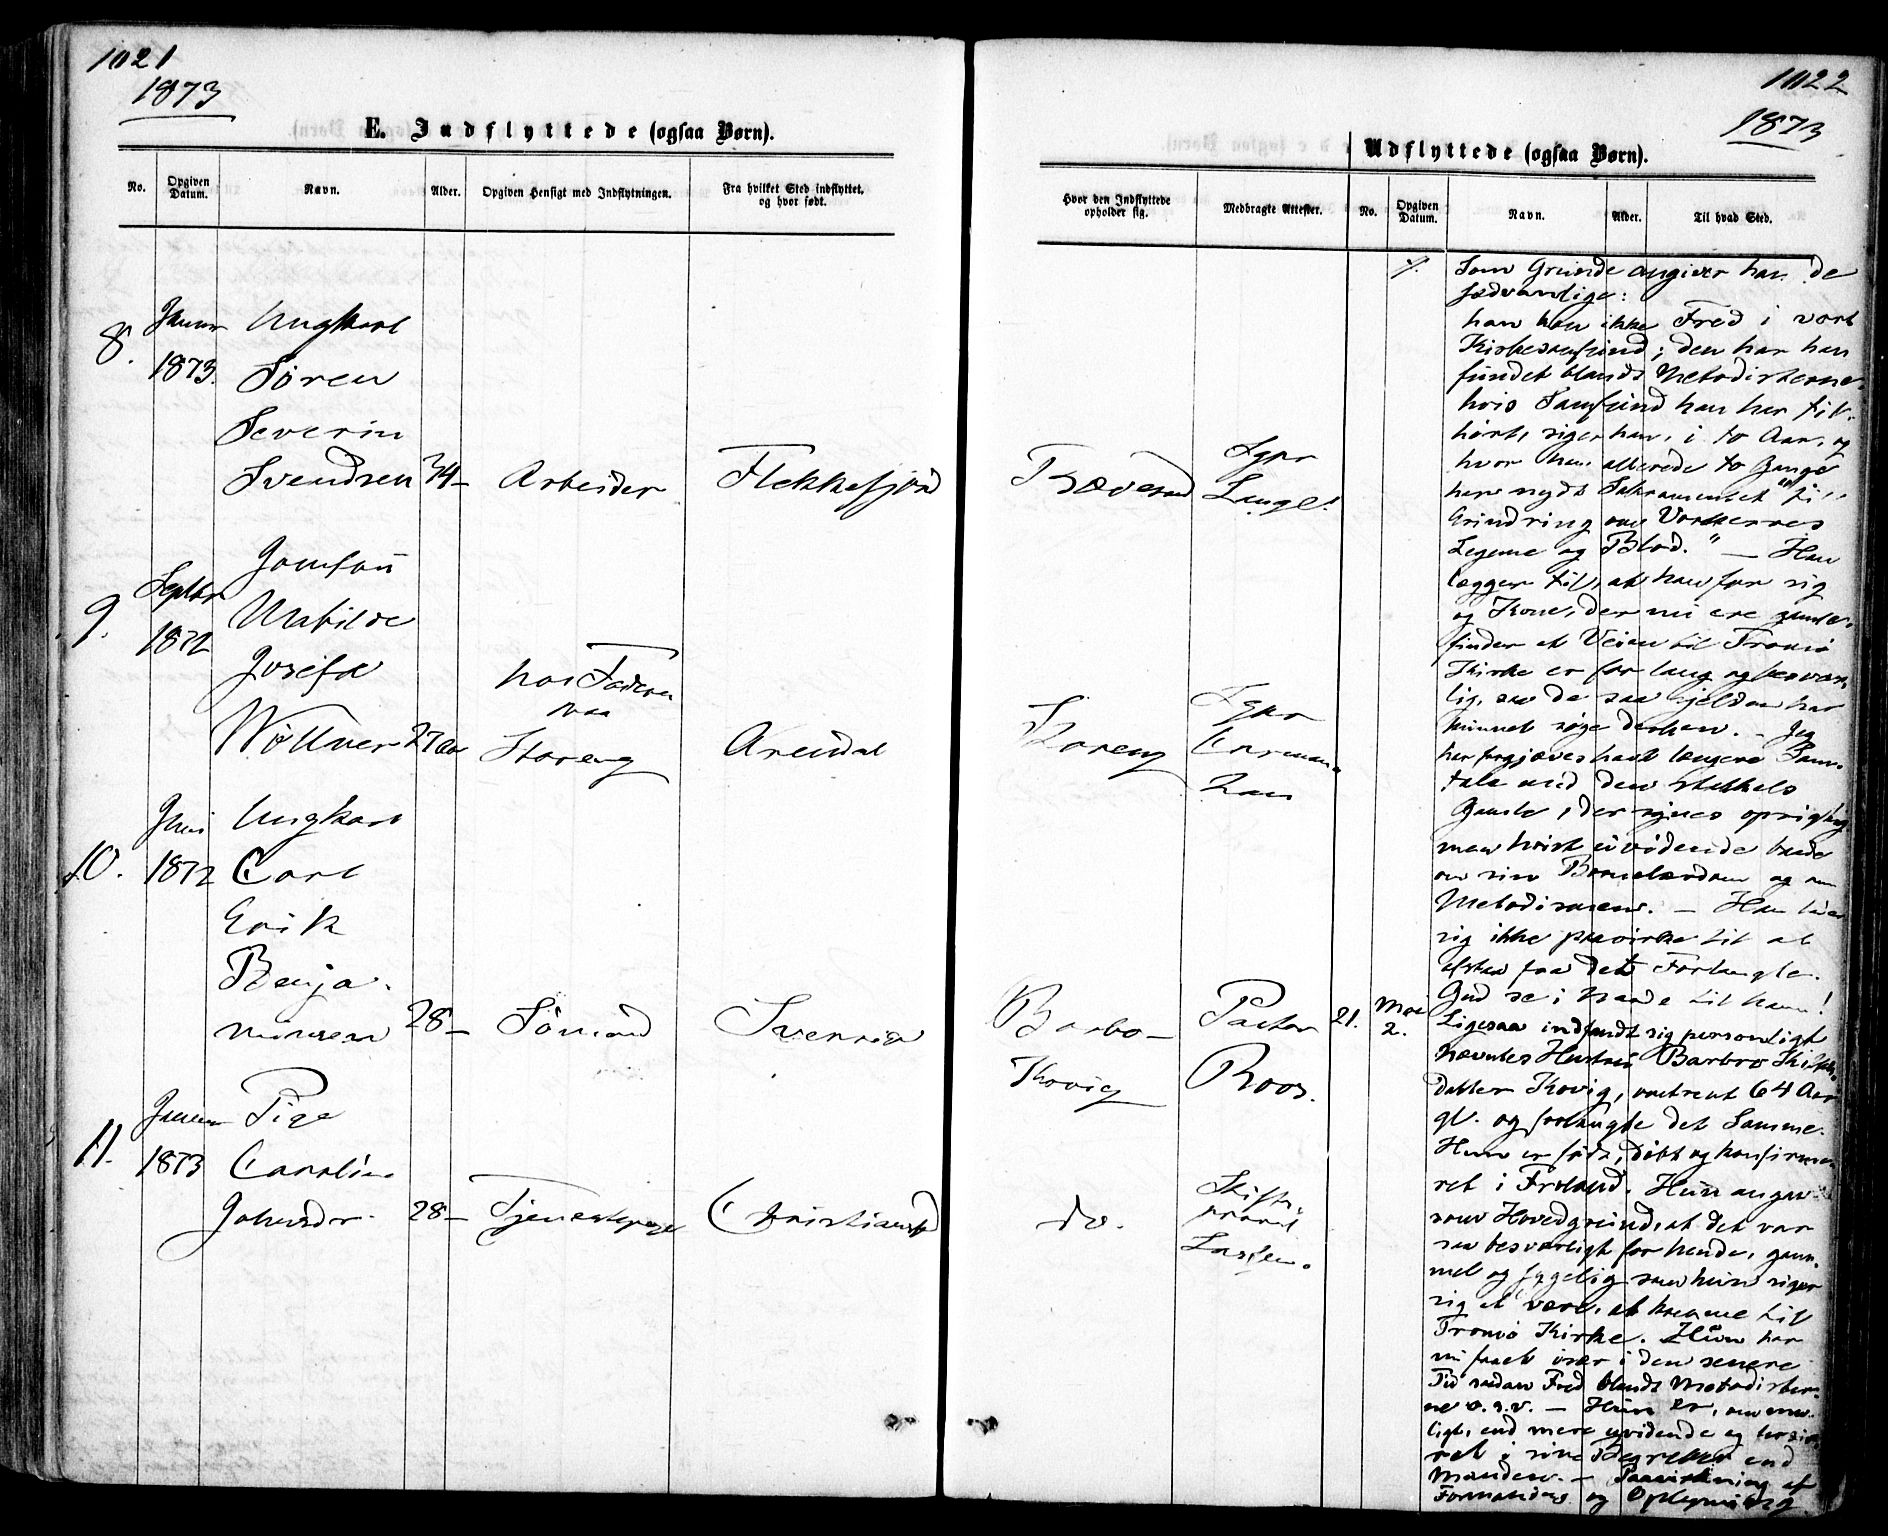 1021
1873
E. Indflyttede (ogsaa Børn).
No.
Opgiven Datum.
Navn.
Alder.
Opgiven Hensigt med Indflytningen.
Fra hvilket Sted indflyttet, og hvor født.
8.
1873.
Ungkarl
Søren
Severin
Svendsen 34 – Arbeider Flekkefjord
9.
Septbr
1872
Jomfru
Matilde
Josefa
27 Aar
hos Faderen
paa
Storeng
Arendal
10.
Juni
1872
Ungkarl
Carl
Erik
Benja-
minsen 28 – Sømand Sverrig
11.
1873
Pige
Caroline
Johnsdr. 28 – Tjenestepige Christianssd
1022
1873
Udflyttede (ogsaa Børn).
Hvor den Indflyttede opholder sig.
Medbragte Attester.
No.
Opgiven Datum.
Navn.
Alder.
Til hvad Sted.
Sgpr
Lange.
Storeng
Sgpr
Barbo –
Kovig
Pastor
Roos.
do.
21.
Mai
2.
Som Grunde angiver han de
sædvanlige:
han har ikke Fred i vort
Kirkesamfund; den har han
fundet blandt Metodisterne,
hvis Samfund han har til-
hørt, siger han, i to Aar, og
hvor han allerede to Gange
have nydt Sakramentet "til
Erindring om Vorherres
Legeme og Blod." – Han
lægger til, at han for sig
og Kone, der nu ere gamle,
finder at Veien til Tromø
Kirke er for lang og besvær-
lig, saa de saa sjelden har
kunnet søge derhen. – Jeg
har forgjæves havt længere Sam-
tale med den stakkels
Gamle, der synes oprigtig
men høist uvidende baade
om sin Børnelærdom og om
Metodismen. – Han lader
sig ikke paavirke til at
afstaa fra det Forlangte.
Gud se i Naade til ham!
Ligesaa indfandt sig personligt
nævntes Hustru Barbro
datter Kovig, omtrent 64 Aar
gl. og forlangte det Samme.
Hun er født, døbt og konfirme-
ret i Froland. Hun angiver
som Hovedgrund, at det var
saa besværligt for hende, gam-
mel og sygelig som hun siger
sig at være, at komme til
Tromø Kirke. Hun har
nu faaet især i den senere
Tid sådan Fred blandt Metodister-
ne o.s.v. – Hun er, om mu-
ligt, end mere uvidende og
ret i sine Begreber end
Manden. – Paavirkning af
Formaning og Oplysning